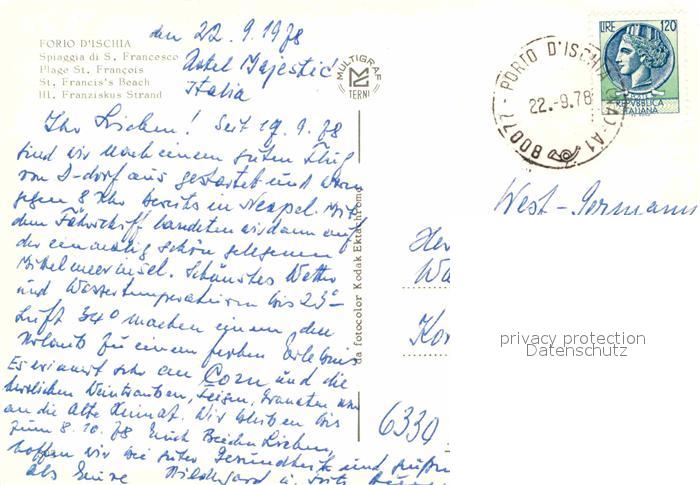 FORIO D'ISCHIA
Spiaggia di S. Francesco
Plage St. François
St. Francis's Beach
Hl. Franziskus Strand
den 22.9.1978
Hotel Majestic
Italia
MULTIGRAF
TERNI
LIRE 120
REPVBBLICA
ITALIANA
80077 - PORTO D'ISCHIA (NA) A1
22.-9.78
Ihr Lieben! Seit 19.9.78
sind wir nach einem guten Flug
von D-dorf aus gestartet und waren
gegen 8 Uhr bereits in Neapel. Mit
dem Fährschiff landeten wir dann auf
der einmalig schön gelegenen
Mittelmeerinsel. Schönstes Wetter
und Wassertemperaturen bis 23°
Luft 34° machen einem den
Urlaub zu einem frohen Erlebnis
Es erinnert sehr an und die
herrlichen Weintrauben, Feigen, Granaten
an die Alte Heimat. Wir bleiben bis
zum 8.10.78 Euch Beiden Lieben,
hoffen wir bei guter Gesundheit und grüßen
als Eure Hildegard u. Fritz
da fotocolor Kodak Ektachrome
West-Germany
Her
Wa
Kor
6330
privacy protection
Datenschutz